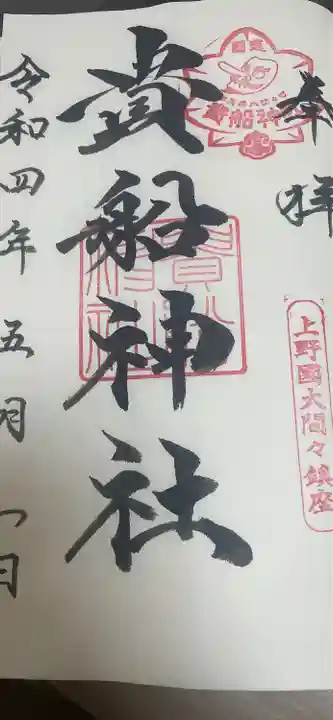 奉拝
上野國大間々鎮座
貴船神社
貴船神社
令和四年五月一日